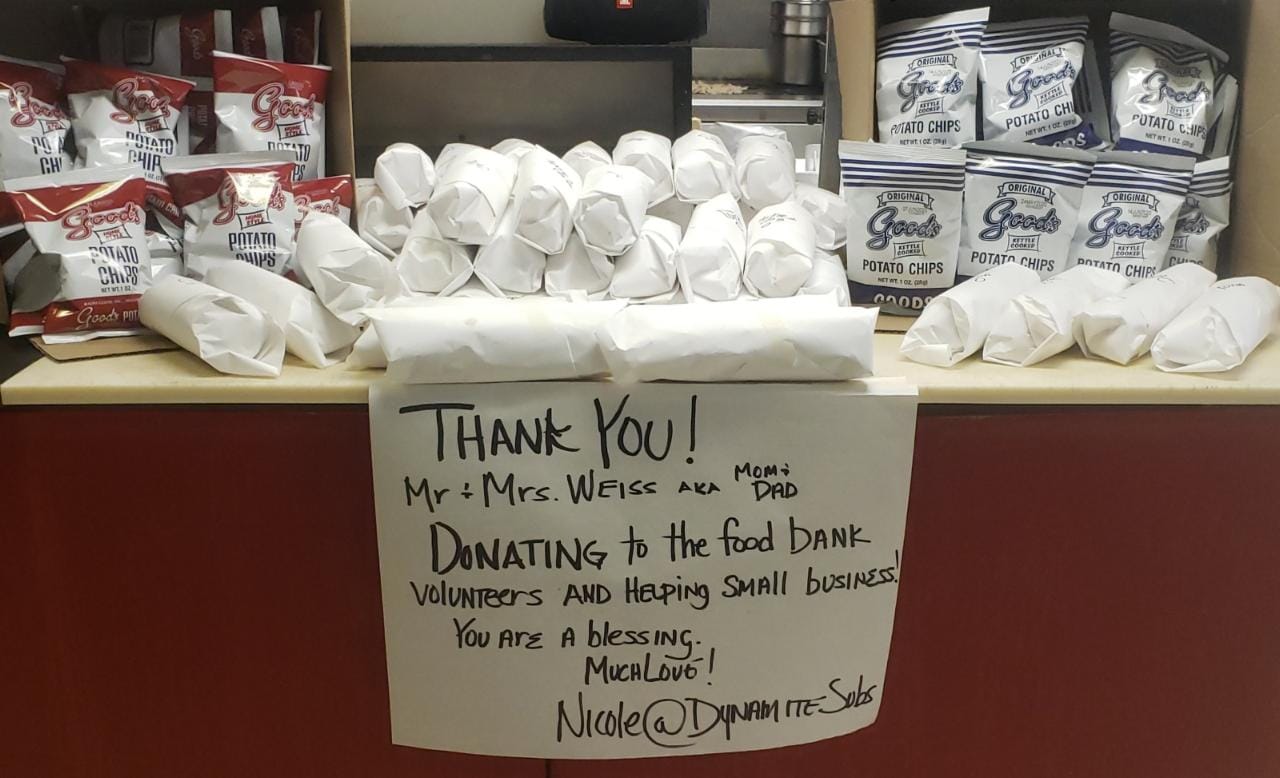 Good's
POTATO CHIPS
Good's
POTATO CHIPS
NET WT. 1 OZ.
Good's
POTATO CHIPS
Good's
POTATO CHIPS
ORIGINAL
Good's
KETTLE COOKED
POTATO CHIPS
NET WT. 1 OZ. (28g)
ORIGINAL
Good's
KETTLE COOKED
POTATO CHI
NET WT. 1 OZ. (28g)
ORIGINAL
Good's
KETTLE COOKED
POTATO CHIPS
NET WT. 1 OZ. (28g)
ORIGINAL
Good's
KETTLE COOKED
POTATO CHIPS
NET WT. 1 OZ. (28g)
GOODS
ORIGINAL
Good's
KETTLE COOKED
POTATO CHIPS
ORIGINAL
Good's
KETTLE COOKED
POTATO CHIPS
THANK YOU!
Mr + Mrs. WEISS AKA MOM + DAD
DONATING to the food BANK
VOLUNTEERS AND HELPING SMALL BUSINESS!
YOU ARE A blessing.
MUCH LOVE!
Nicole@DYNAMITE Subs